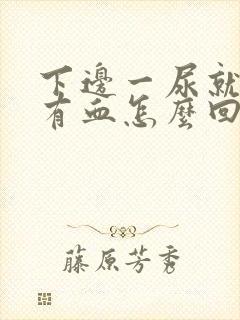 下邊一尿就
有血怎麼回
藤原芳秀